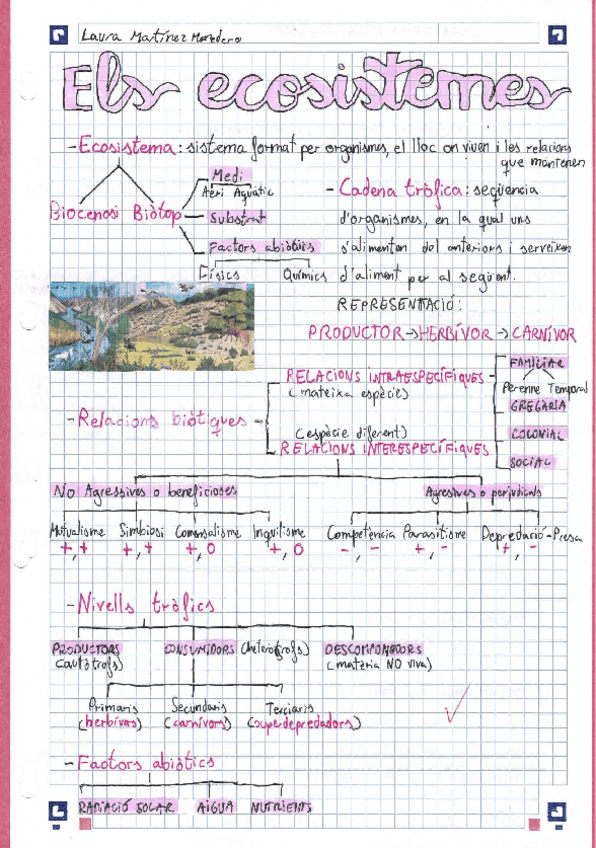 Laura Martínez
Els ecosistemes
- Ecosistema: sistema format per organismes, el lloc on viven i les relacions
que mantenen
Biocenosi Biòtop
Medi
Aeri Aquàtic
Substrat
Factors abiòtics
Físics Químics
- Cadena tròfica: seqüència
d'organismes, en la qual uns
s'alimenten del anteriors i serveixen
d'aliment per al següent.
REPRESENTACIÓ:
PRODUCTOR → HERBÍVOR → CARNÍVOR
- Relacions biòtiques
RELACIONS INTRAESPECÍFIQUES
(mateixa espècie)
FAMILIAR
Perenne Temporal
GREGÀRIA
COLONIAL
SOCIAL
(espècie diferent)
RELACIONS INTERESPECÍFIQUES
No Agressives o beneficioses
Agresives o perjudicials
Mutualisme Simbiosi Comensalisme Inquilisme
+,+ +,+ +,0 +,0
Competència Parasitisme Depredació-Presa
-,- +,- +,-
- Nivells tròfics
PRODUCTORS
(autòtrofs)
CONSUMIDORS (heteròtrofs)
DESCOMPONEDORS
(matèria NO viva)
Primaris
(herbívors)
Secundaris
(carnívors)
Terciaris
(superdepredadors)
- Factors abiòtics
RADIACIÓ SOLAR AIGUA NUTRIENTS